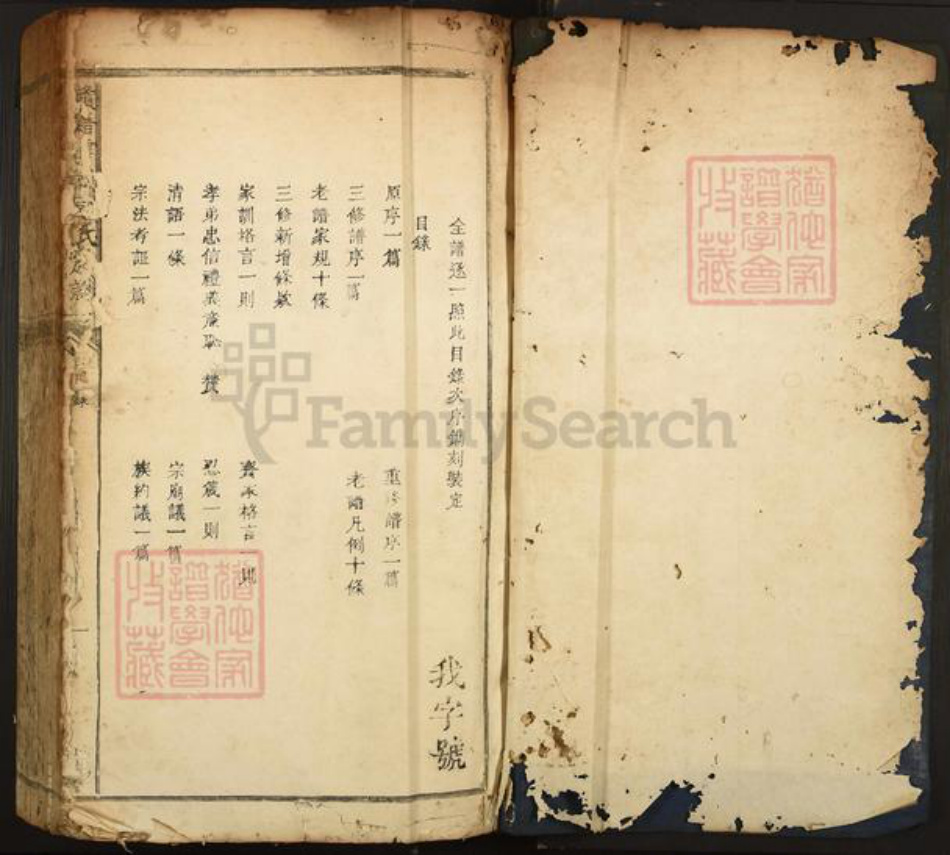 全譜逐一照此目錄次序鐫刻裝定
目錄
原序一篇
重修譜序一篇
三修譜序一篇
老譜凡例十條
老譜家規十條
三修新增條款
家訓格言一則
齊家格言一則
孝弟忠信禮義廉恥 贊
忍箴一則
清語一條
宗廟議一篇
宗法考証一篇
族約議一篇
我字號
氏
FamilySearch
譜學會
收藏
譜學會
收藏